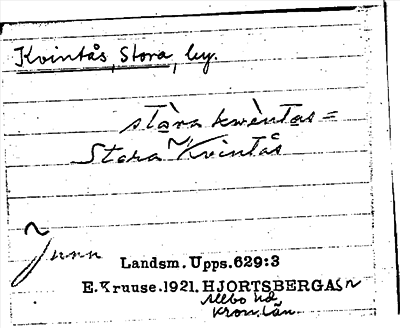 Kvintås, Stora, by.
stàra kwèntas =
Stora Kvintås
Landsm. Upps. 629:3
E. Kruuse. 1921. HJORTSBERGA Sn
Allbo hd
Kron. Län